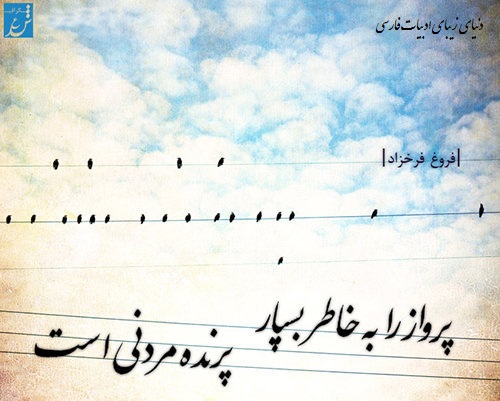 دنیای زیبای ادبیات فارسی
|فروغ فرخزاد|
پرواز را به خاطر بسپار
پرنده مردنی است